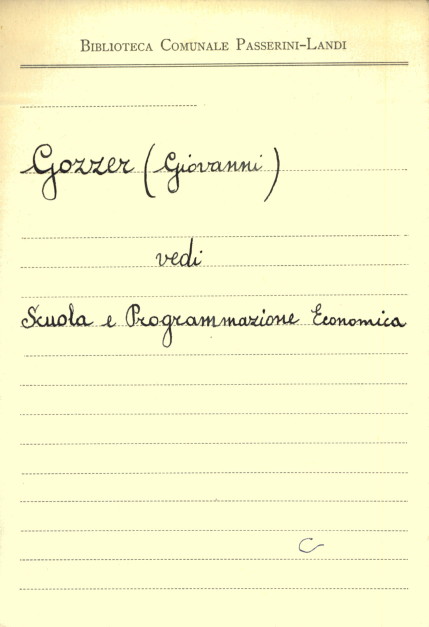 Biblioteca Comunale Passerini-Landi
Gozzer (Giovanni)
vedi
Scuola e Programmazione Economica
C